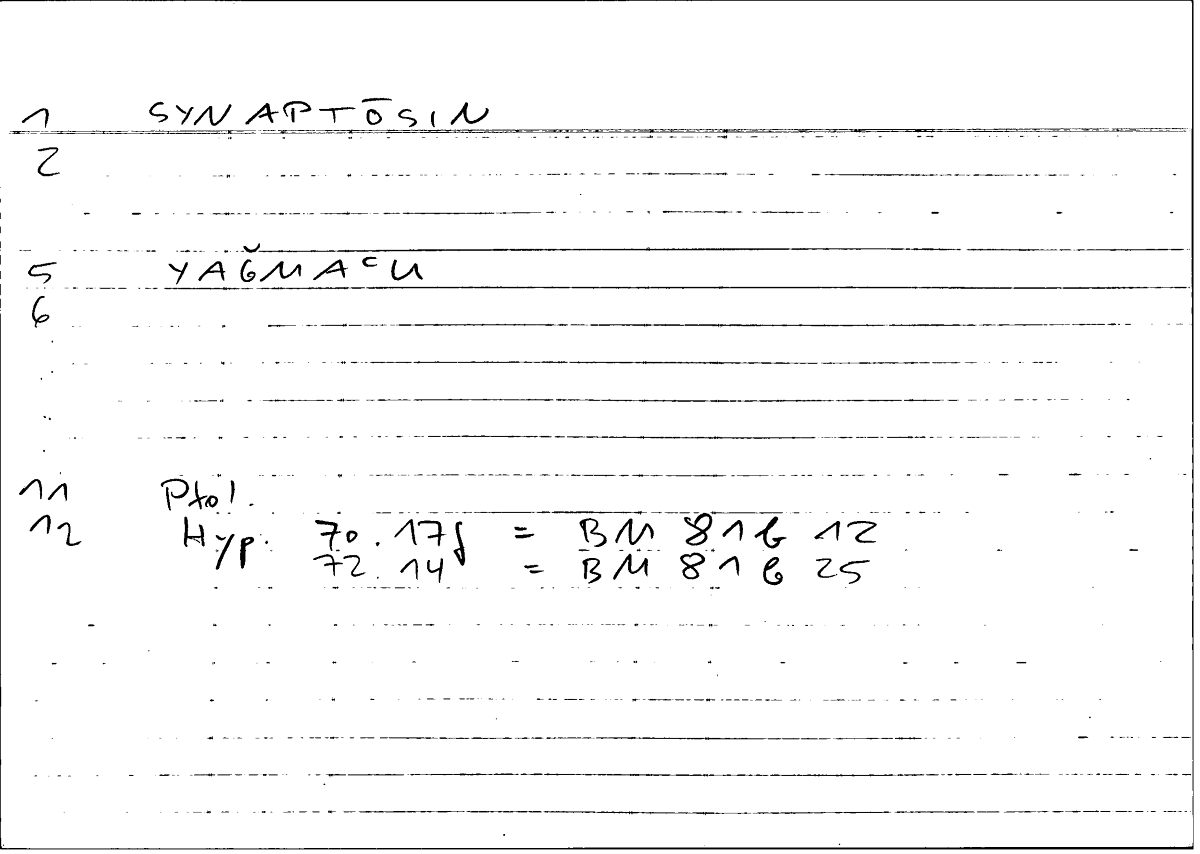 1 SYNAPTŌSIN
2
5 YAĞMAᶜU
6
11 Ptol.
12 Hyp. 70.17f = BM 81b 12
72.14 = BM 81b 25